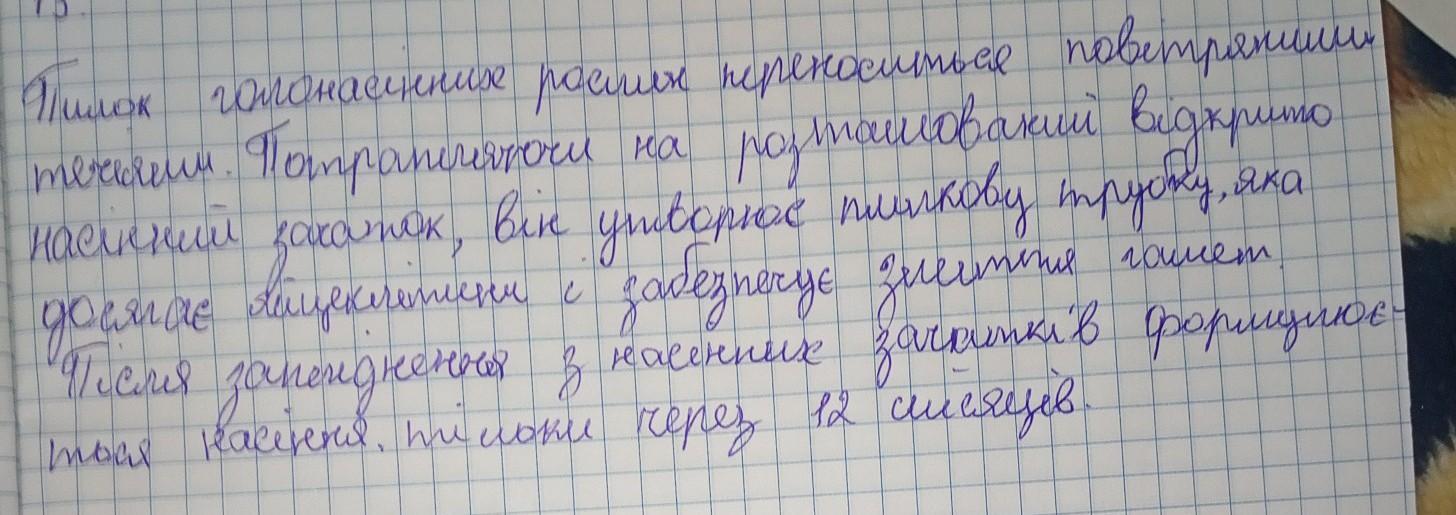 Пилок голонасінних рослин переноситься повітряними
течіями. Потрапляючи на розташований відкрито
насінний зачаток, він утворює пилкову трубку, яка
досягає яйцеклітини і забезпечує злиття гамет.
Після запліднення з насінних зачатків формуюєть-
ться насіння. через 12 місяців.